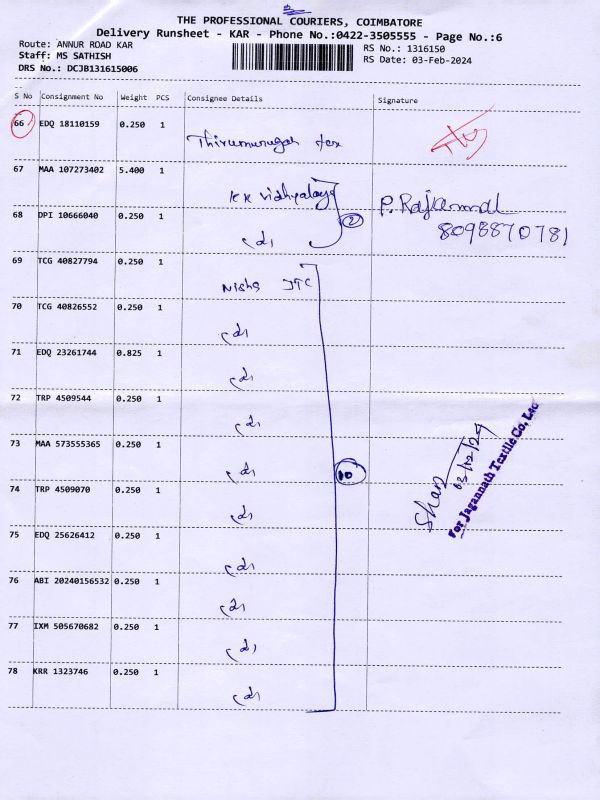 THE PROFESSIONAL COURIERS, COIMBATORE
Delivery Runsheet - KAR - Phone No.:0422-3505555 - Page No.:6
Route: ANNUR ROAD KAR
RS No.: 1316150
Staff: MS SATHISH
RS Date: 03-Feb-2024
DRS No.: DCJB131615006
S No Consignment No Weight PCS Consignee Details Signature
66 EDQ 18110159 0.250 1
Thirumurugan tex
67 MAA 107273402 5.400 1
KK Vidhyalaya
P. Rajkammal
68 DPI 10666040 0.250 1
2
8098870781
69 TCG 40827794 0.250 1
Nisha JTC
70 TCG 40826552 0.250 1
71 EDQ 23261744 0.825 1
72 TRP 4509544 0.250 1
73 MAA 573555365 0.250 1
10
03/12/24
For Jagannath Textile Co, Ltd
74 TRP 4509070 0.250 1
75 EDQ 25626412 0.250 1
76 ABI 20240156532 0.250 1
77 IXM 505670682 0.250 1
78 KRR 1323746 0.250 1